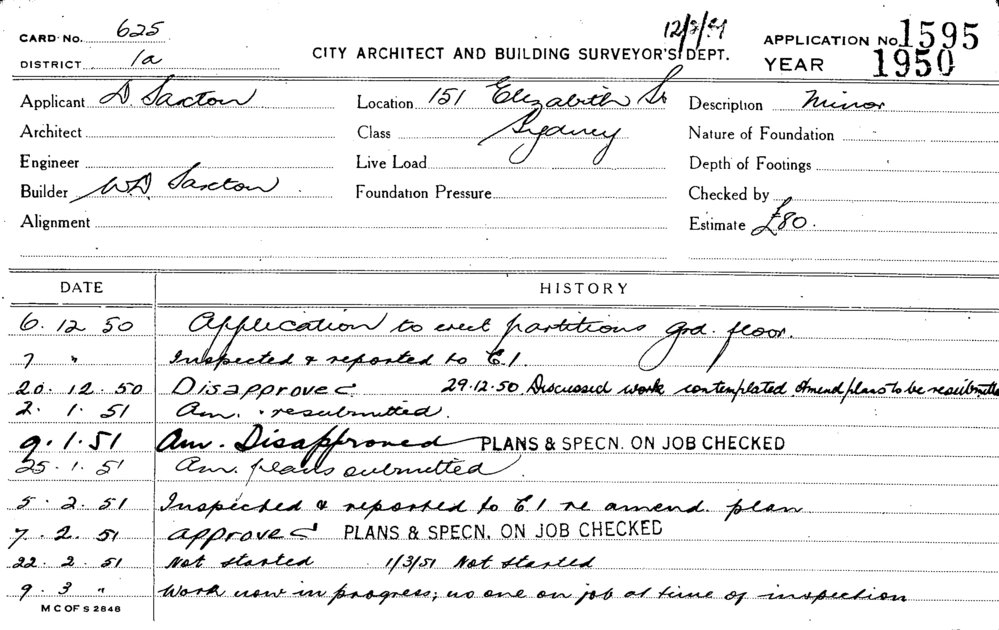 CARD No. 625
DISTRICT 1a
CITY ARCHITECT AND BUILDING SURVEYOR'S DEPT.
APPLICATION No. 1595
YEAR 1950
Applicant D Saxton
Location 151 Elizabeth St
Description Minor
Architect
Class Sydney
Nature of Foundation
Engineer
Live Load
Depth of Footings
Builder W.D. Saxton
Foundation Pressure
Checked by
Alignment
Estimate £80.
DATE HISTORY
6. 12 50 Application to erect partitions grd. floor.
7 " Inspected & reported to E.I.
20. 12. 50 Disapproved 29.12.50. Discussed work contemplated. Amend plans to be resubmitted
2. 1. 51 Am. resubmitted.
9. 1. 51 Am. Disapproved PLANS & SPECN. ON JOB CHECKED
25. 1. 51 Am. plans submitted
5. 2. 51 Inspected & reported to E.I re amend. plan
7. 2. 51 approved PLANS & SPECN. ON JOB CHECKED
22. 2. 51 Not started 1/3/51 Not started
9. 3 " Work now in progress; no one on job at time of inspection
M C OF S 2848